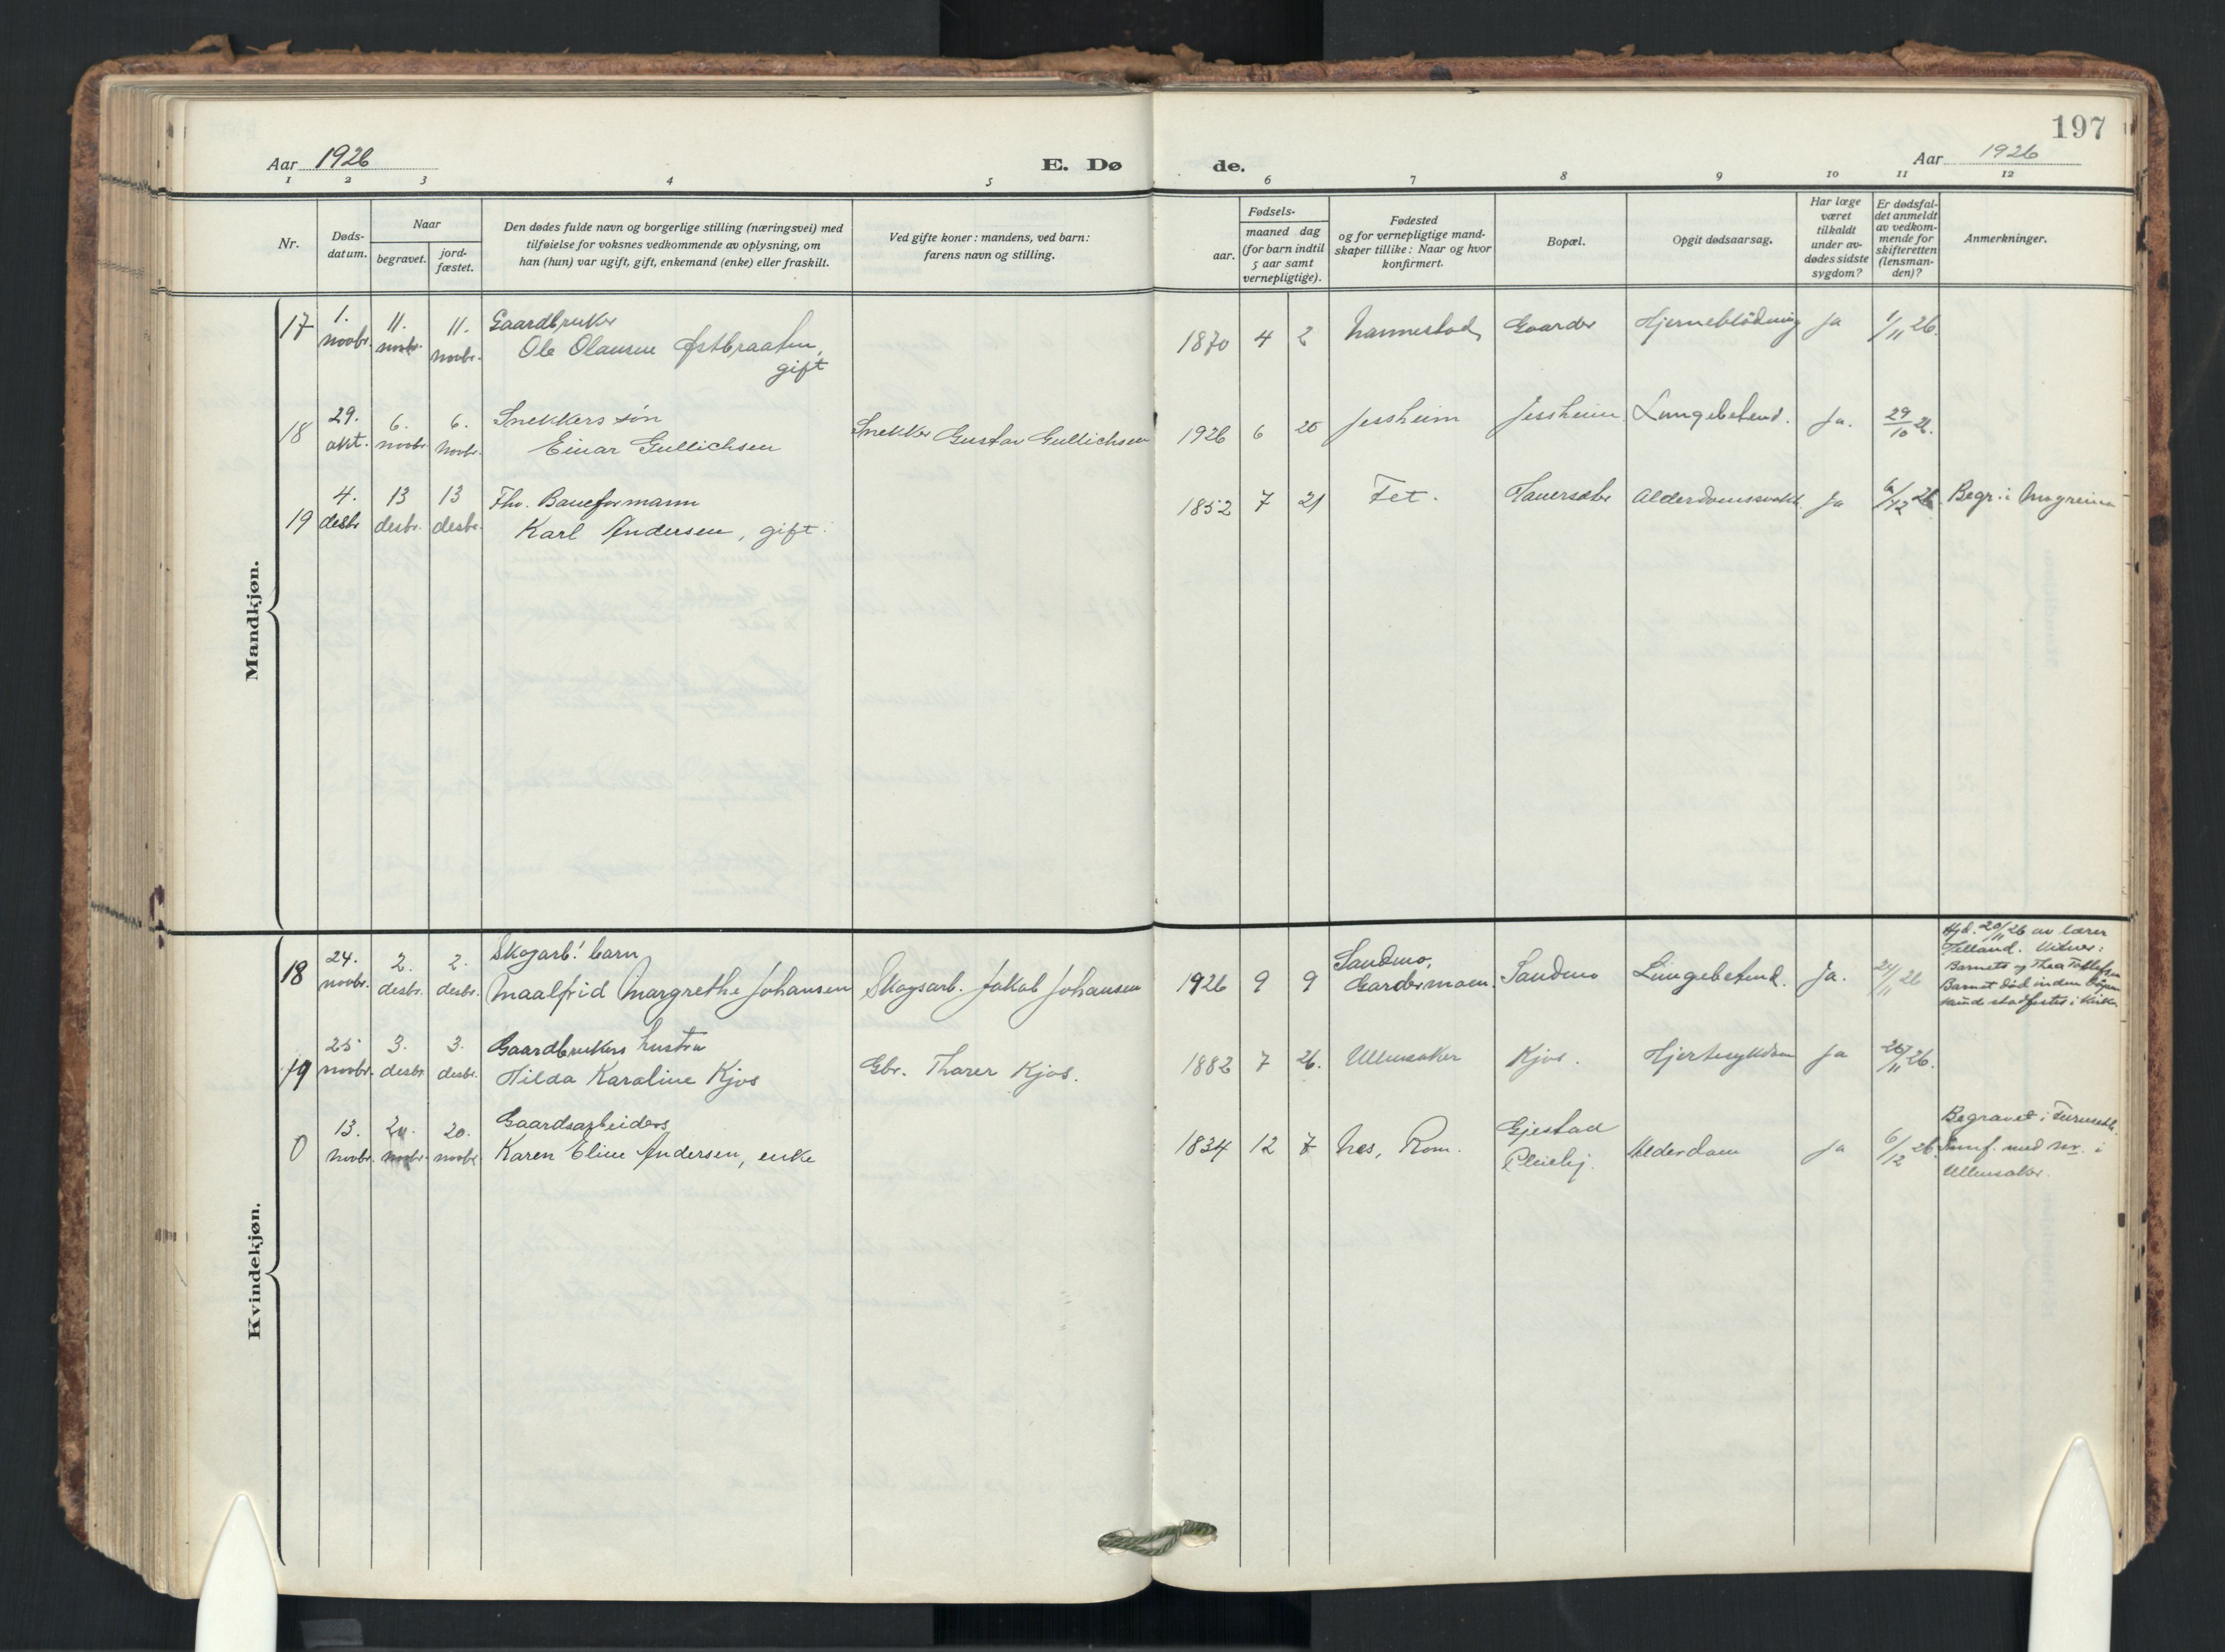 197
Aar 1926
E. Dø
de.
Aar 1926
1 2 3 4 5 6 7 8 9 10 11 12
Nr.
Døds-
datum.
Naar
begravet.
jord-
fæstet.
Den dødes fulde navn og borgerlige stilling (næringsvei) med
tilføielse for voksnes vedkommende av oplysning, om
han (hun) var ugift, gift, enkemand (enke) eller fraskilt.
Ved gifte koner: mandens, ved barn:
farens navn og stilling.
Fødsels-
aar.
maaned dag
(for barn indtil
5 aar samt
vernepligtige).
Fødested
og for vernepligtige mand-
skaper tillike: Naar og hvor
konfirmert.
Bopæl.
Opgit dødsaarsag.
Har læge
været
tilkaldt
under av-
dødes sidste
sygdom?
Er dødsfal-
det anmeldt
av vedkom-
mende for
skifteretten
(lensman-
den)?
Anmerkninger.
Mandkjøn.
17 1. novbr. 11. novbr. 11. novbr. Gaardbruker
Ole Olausen Østbraaten,
gift
1870 4 2 Nannestad Gaarder Hjerneblödning Ja 1/11 26.
18 29. okt. 6. novbr. 6. novbr. Snekkers søn
Einar Gullichsen
Snekker Gustav Gullichsen
1926 6 20 Jessheim Jessheim Lungebetend. Ja. 29/10 26.
19 4. desbr 13 desbr. 13 desbr. Fhv. Baneformann
Karl Andersen, gift.
1852 7 21 Fet. Alderdomssvakh. Ja 6/12 26. Begr. i Mogreina
Kvindekjøn.
18 24. novbr. 2. desbr. 2. desbr. Skogarb! barn
Maalfrid Margrethe Johansen
Skogsarb. Jakob Johansen
1926 9 9 Sandmo,
Gardermoen. Sandmo Lungebetend. Ja. 24/11 26
Hjd. 20/11 26 av lærer
Helland. Vitner:
Barnets og Thea Tollefsen
Barnet død inden
stadfestes i Kirken
19 25 novbr. 3. desbr 3. desbr. Gaardbrukers hustru
Hilda Karoline Kjos
Gbr. Tharer Kjos.
1882 7 26. Ullensaker Kjos. Hjertesykdom Ja 26/11 26.
0 13. novbr. 20. novbr. 20. novbr. Gaardsarbeiders
Karen Eline Andersen, enke
1834 12 7 Nes, Rom. Gjestad
Pleiehj. Alderdom Ja 6/12 26.
Begravet i Furuseth.
Jmnf. med nr. i
Ullensaker.